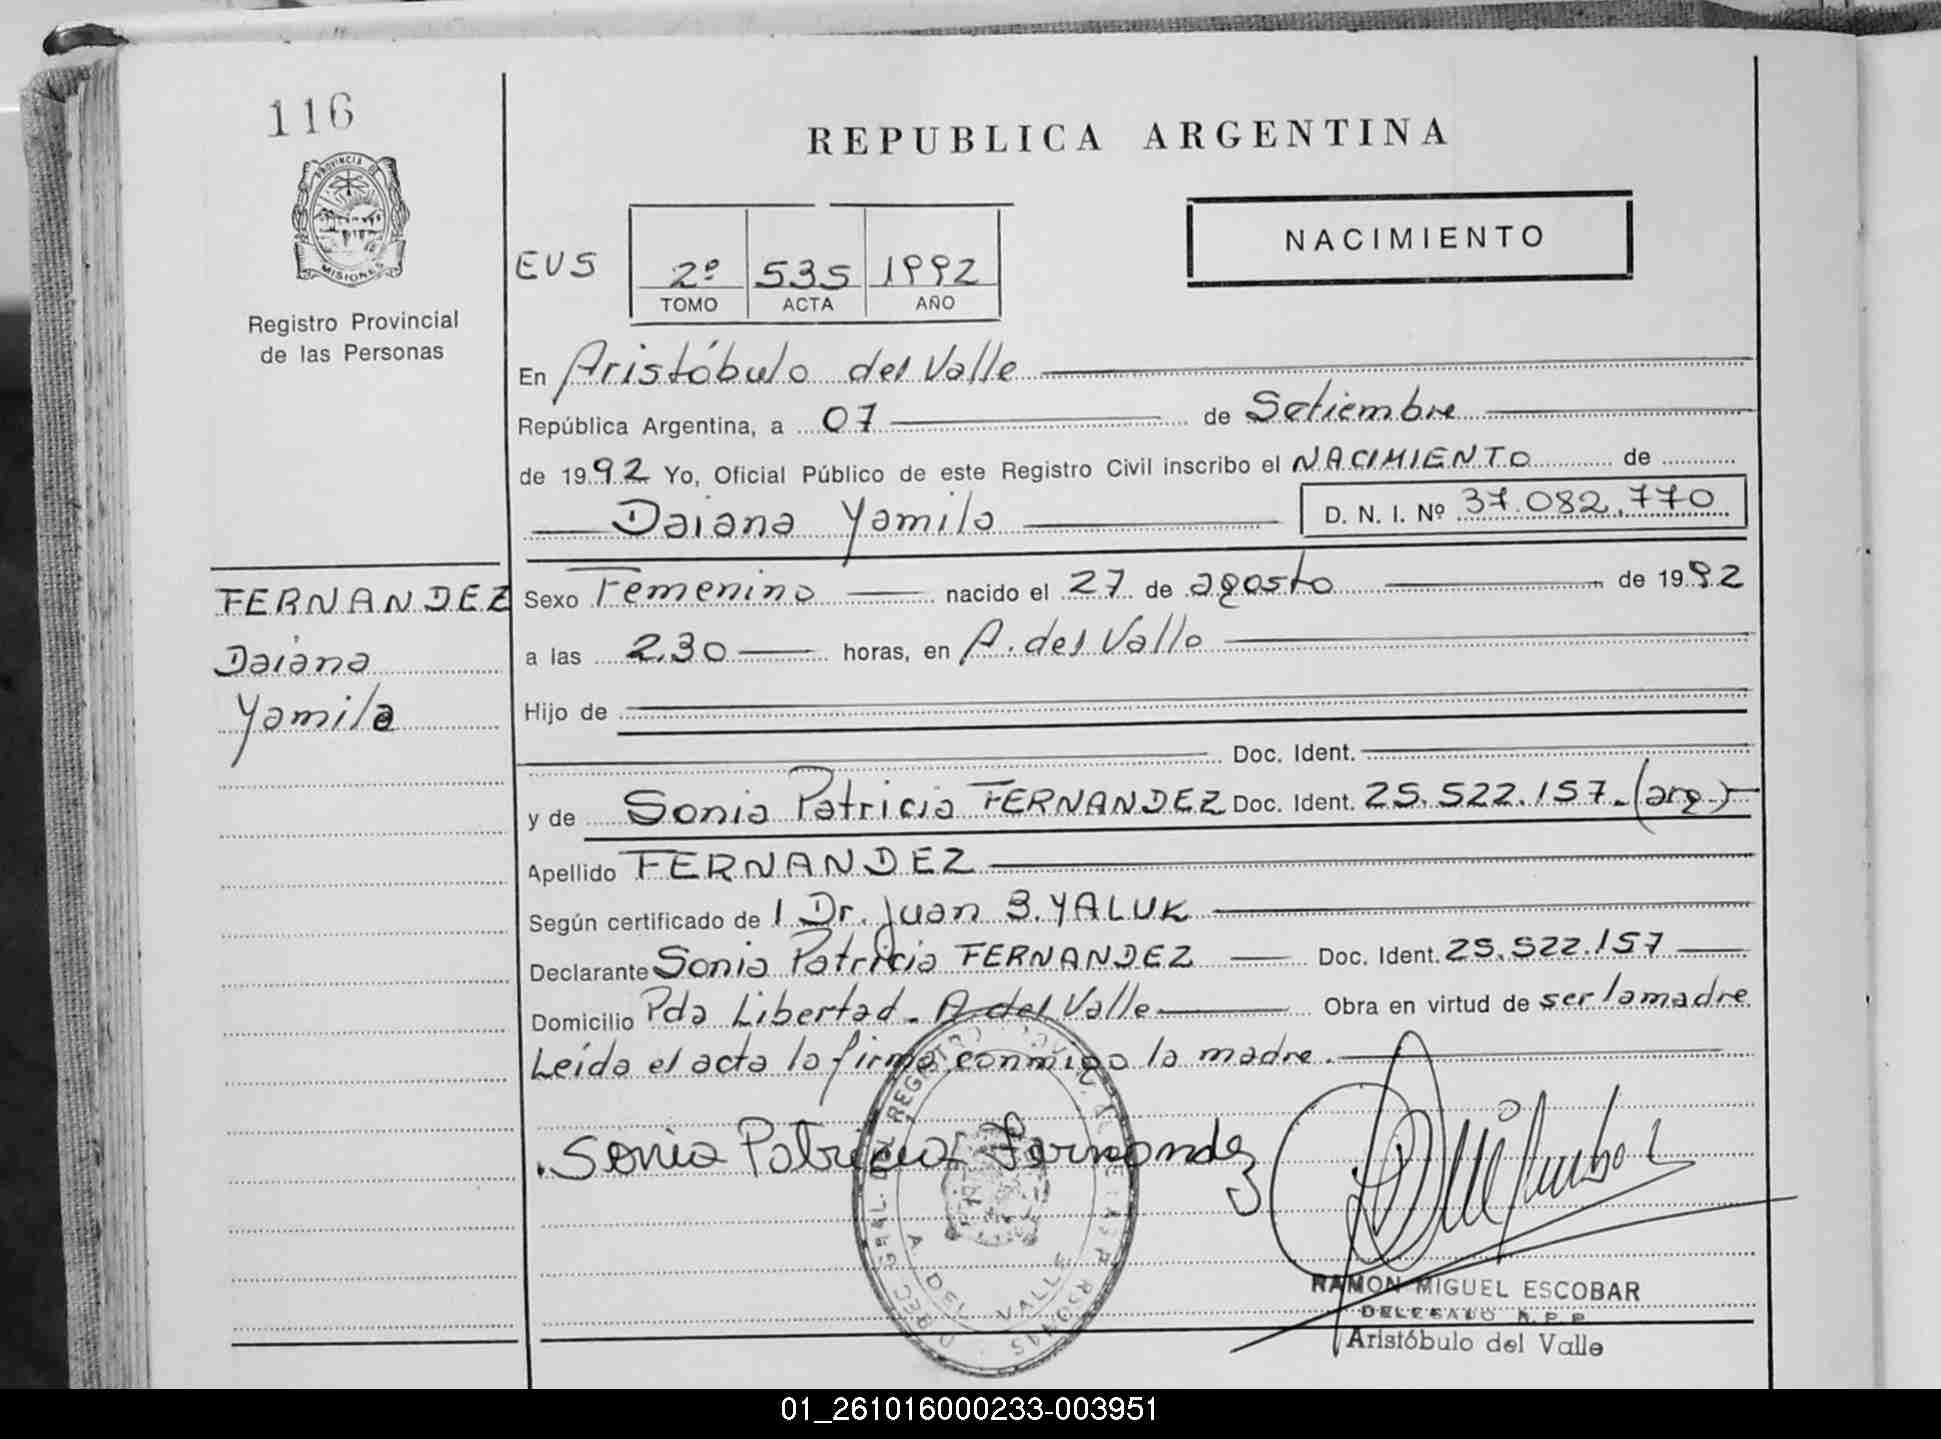 116
PROVINCIA DE
MISIONES
Registro Provincial
de las Personas
FERNANDEZ
Daiana
Yamila
REPUBLICA ARGENTINA
EUS
2º 535 1992
TOMO ACTA AÑO
NACIMIENTO
En Aristóbulo del Valle
República Argentina, a 07 de Setiembre
de 1992 Yo, Oficial Público de este Registro Civil inscribo el NACIMIENTO de
Daiana Yamila D. N. I. Nº 37.082.770
Sexo Femenino nacido el 27 de agosto de 1992
a las 2.30 horas, en A. del Valle
Hijo de
Doc. Ident.
y de Sonia Patricia FERNANDEZ Doc. Ident. 25.522.157.(arg)
Apellido FERNANDEZ
Según certificado de l Dr. Juan B. YALUK
Declarante Sonia Patricia FERNANDEZ Doc. Ident. 25.522.157
Domicilio Pda Libertad. A del Valle Obra en virtud de ser la madre
Leída el acta la firma conmigo la madre.
Sonia Patricia Fernandez
A. DEL VALLE
RAMON MIGUEL ESCOBAR
DELEGADO R.P.P
Aristóbulo del Valle
01_261016000233-003951